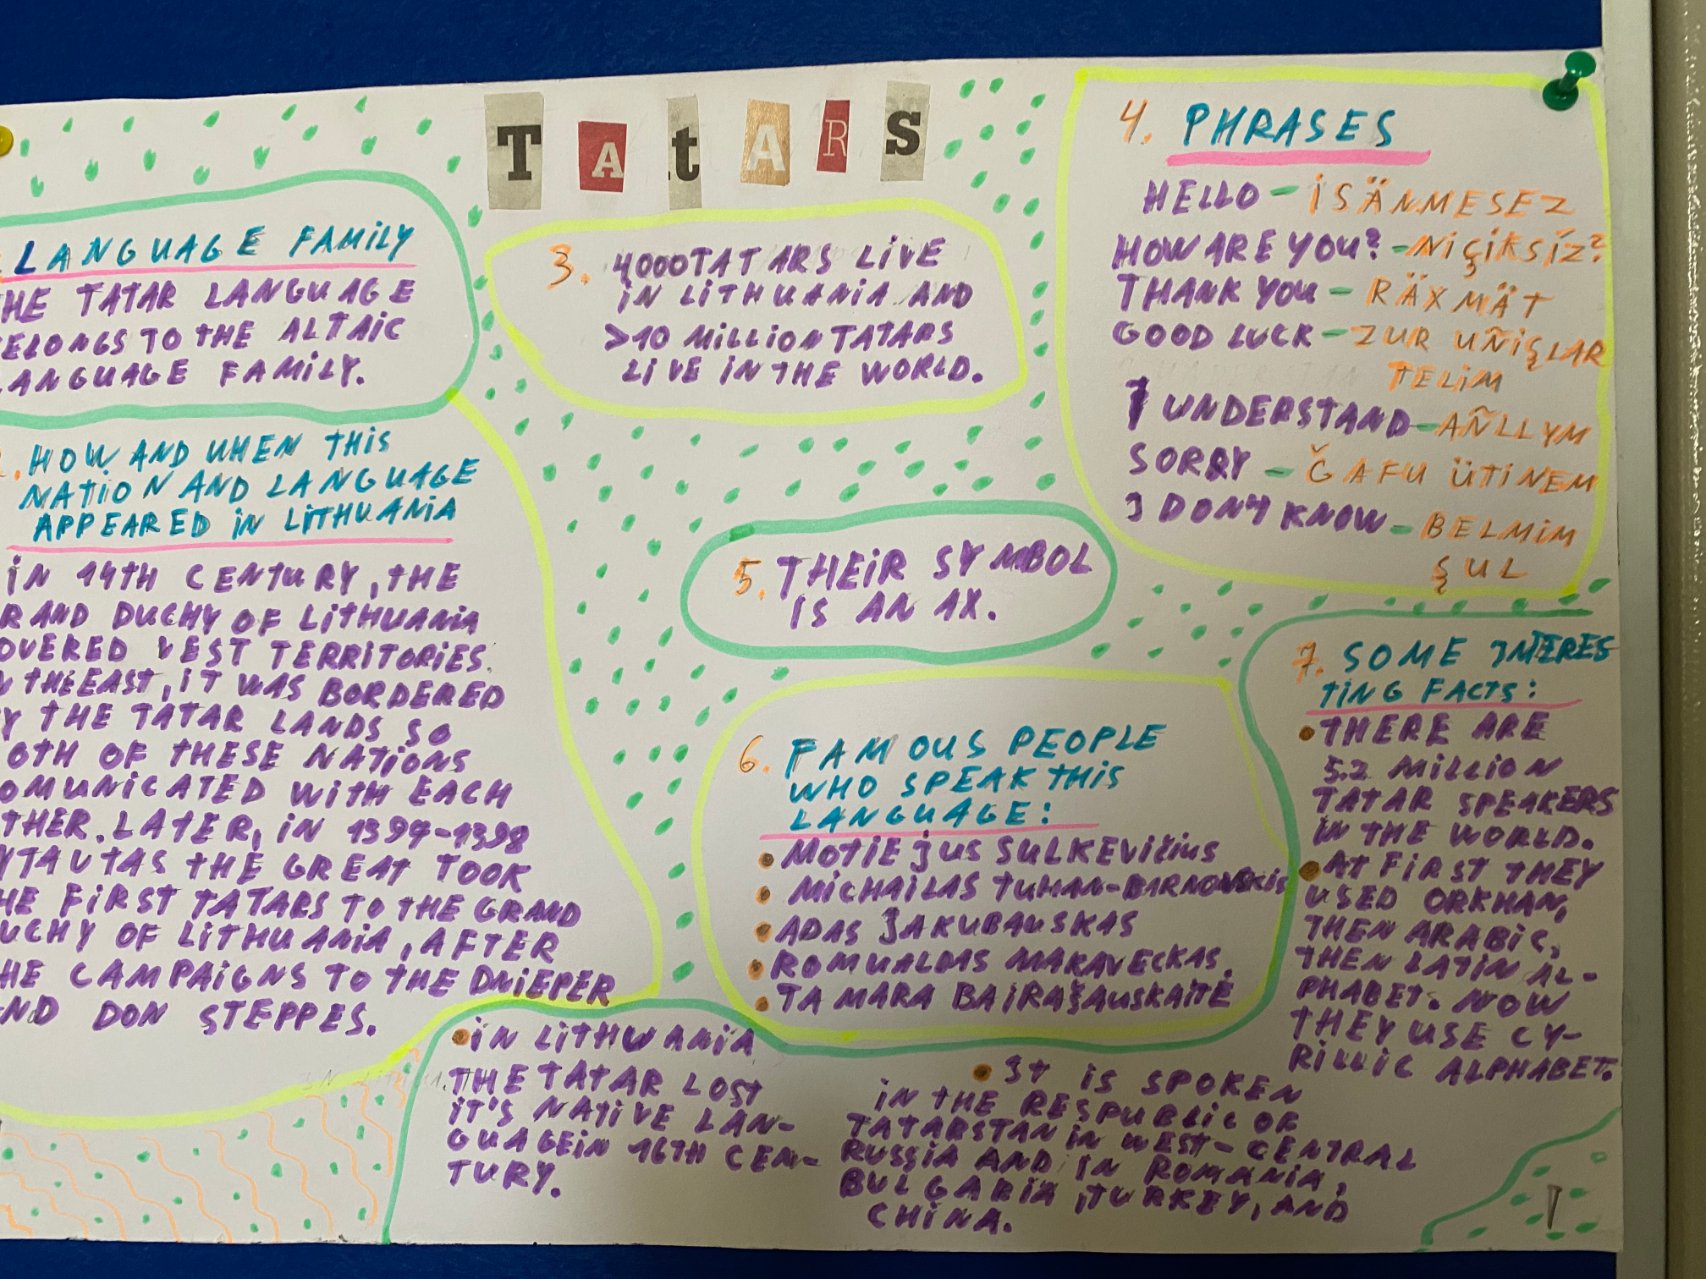 TAtARS
LANGUAGE FAMILY
HE TATAR LANGUAGE
ELONGS TO THE ALTAIC
ANGUAGE FAMILY.
. HOW AND WHEN THIS
NATION AND LANGUAGE
APPEARED IN LITHUANIA
IN 14TH CENTURY, THE
RAND DUCHY OF LITHUANIA
OVERED VEST TERRITORIES.
N THE EAST, IT WAS BORDERED
Y THE TATAR LANDS SO
OTH OF THESE NATIONS
OMUNICATED WITH EACH
THER. LATER, IN 1397-1398
YTAUTAS THE GREAT TOOK
HE FIRST TATARS TO THE GRAND
UCHY OF LITHUANIA, AFTER
HE CAMPAIGNS TO THE DNIEPER
ND DON STEPPES.
3. 4000 TATARS LIVE
IN LITHUANIA AND
>10 MILLION TATARS
LIVE IN THE WORLD.
4. PHRASES
HELLO - İSÄNMESEZ
HOW ARE YOU? - NIÇIKSIZ?
THANK YOU - RÄXMÄT
GOOD LUCK - ZUR UÑIŞLAR
TELIM
I UNDERSTAND - AÑLLYM
SORRY - ĞAFU ÜTINEM
I DON'T KNOW - BELMIM
ŞUL
5. THEIR SYMBOL
IS AN AX.
6. FAMOUS PEOPLE
WHO SPEAK THIS
LANGUAGE:
• MOTIEJUS SULKEVIČIUS
• MICHAILAS TUHAN-BARNOVSKIS
• ADAS JAKUBAUSKAS
• ROMUALDAS MAKAVECKAS
• TAMARA BAIRAŠAUSKAITĖ
7. SOME INTERES
TING FACTS:
• THERE ARE
5.2 MILLION
TATAR SPEAKERS
IN THE WORLD.
• AT FIRST THEY
USED ORKHAN,
THEN ARABIC,
THEN LATIN AL-
PHABET. NOW
THEY USE CY-
RILLIC ALPHABET.
• IN LITHUANIA
THE TATAR LOST
IT'S NATIVE LAN-
GUAGE IN 16TH CEN-
TURY.
• IT IS SPOKEN
IN THE RESPUBLIC OF
TATARSTAN IN WEST-CENTRAL
RUSSIA AND IN ROMANIA,
BULGARIA, TURKEY, AND
CHINA.